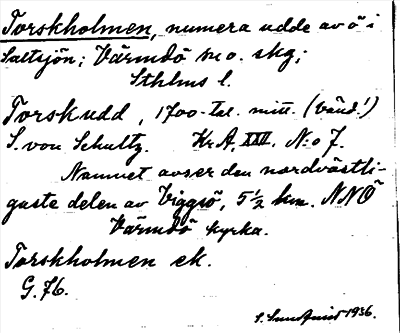 Torskholmen, numera udde av ö i
Saltsjön; Värmdö sn o. skg;
Sthlms l.
Torskudd, 1700-tal. mitt. (Vänd!)
S. von Schultz. Kr. A, XXII. N:o 7.
Namnet avser den nordvästli-
gaste delen av Viggsö, 5½ km. NNÖ
Värmdö kyrka.
Torskholmen ek.
G. 76.
S. Lundqvist 1936.